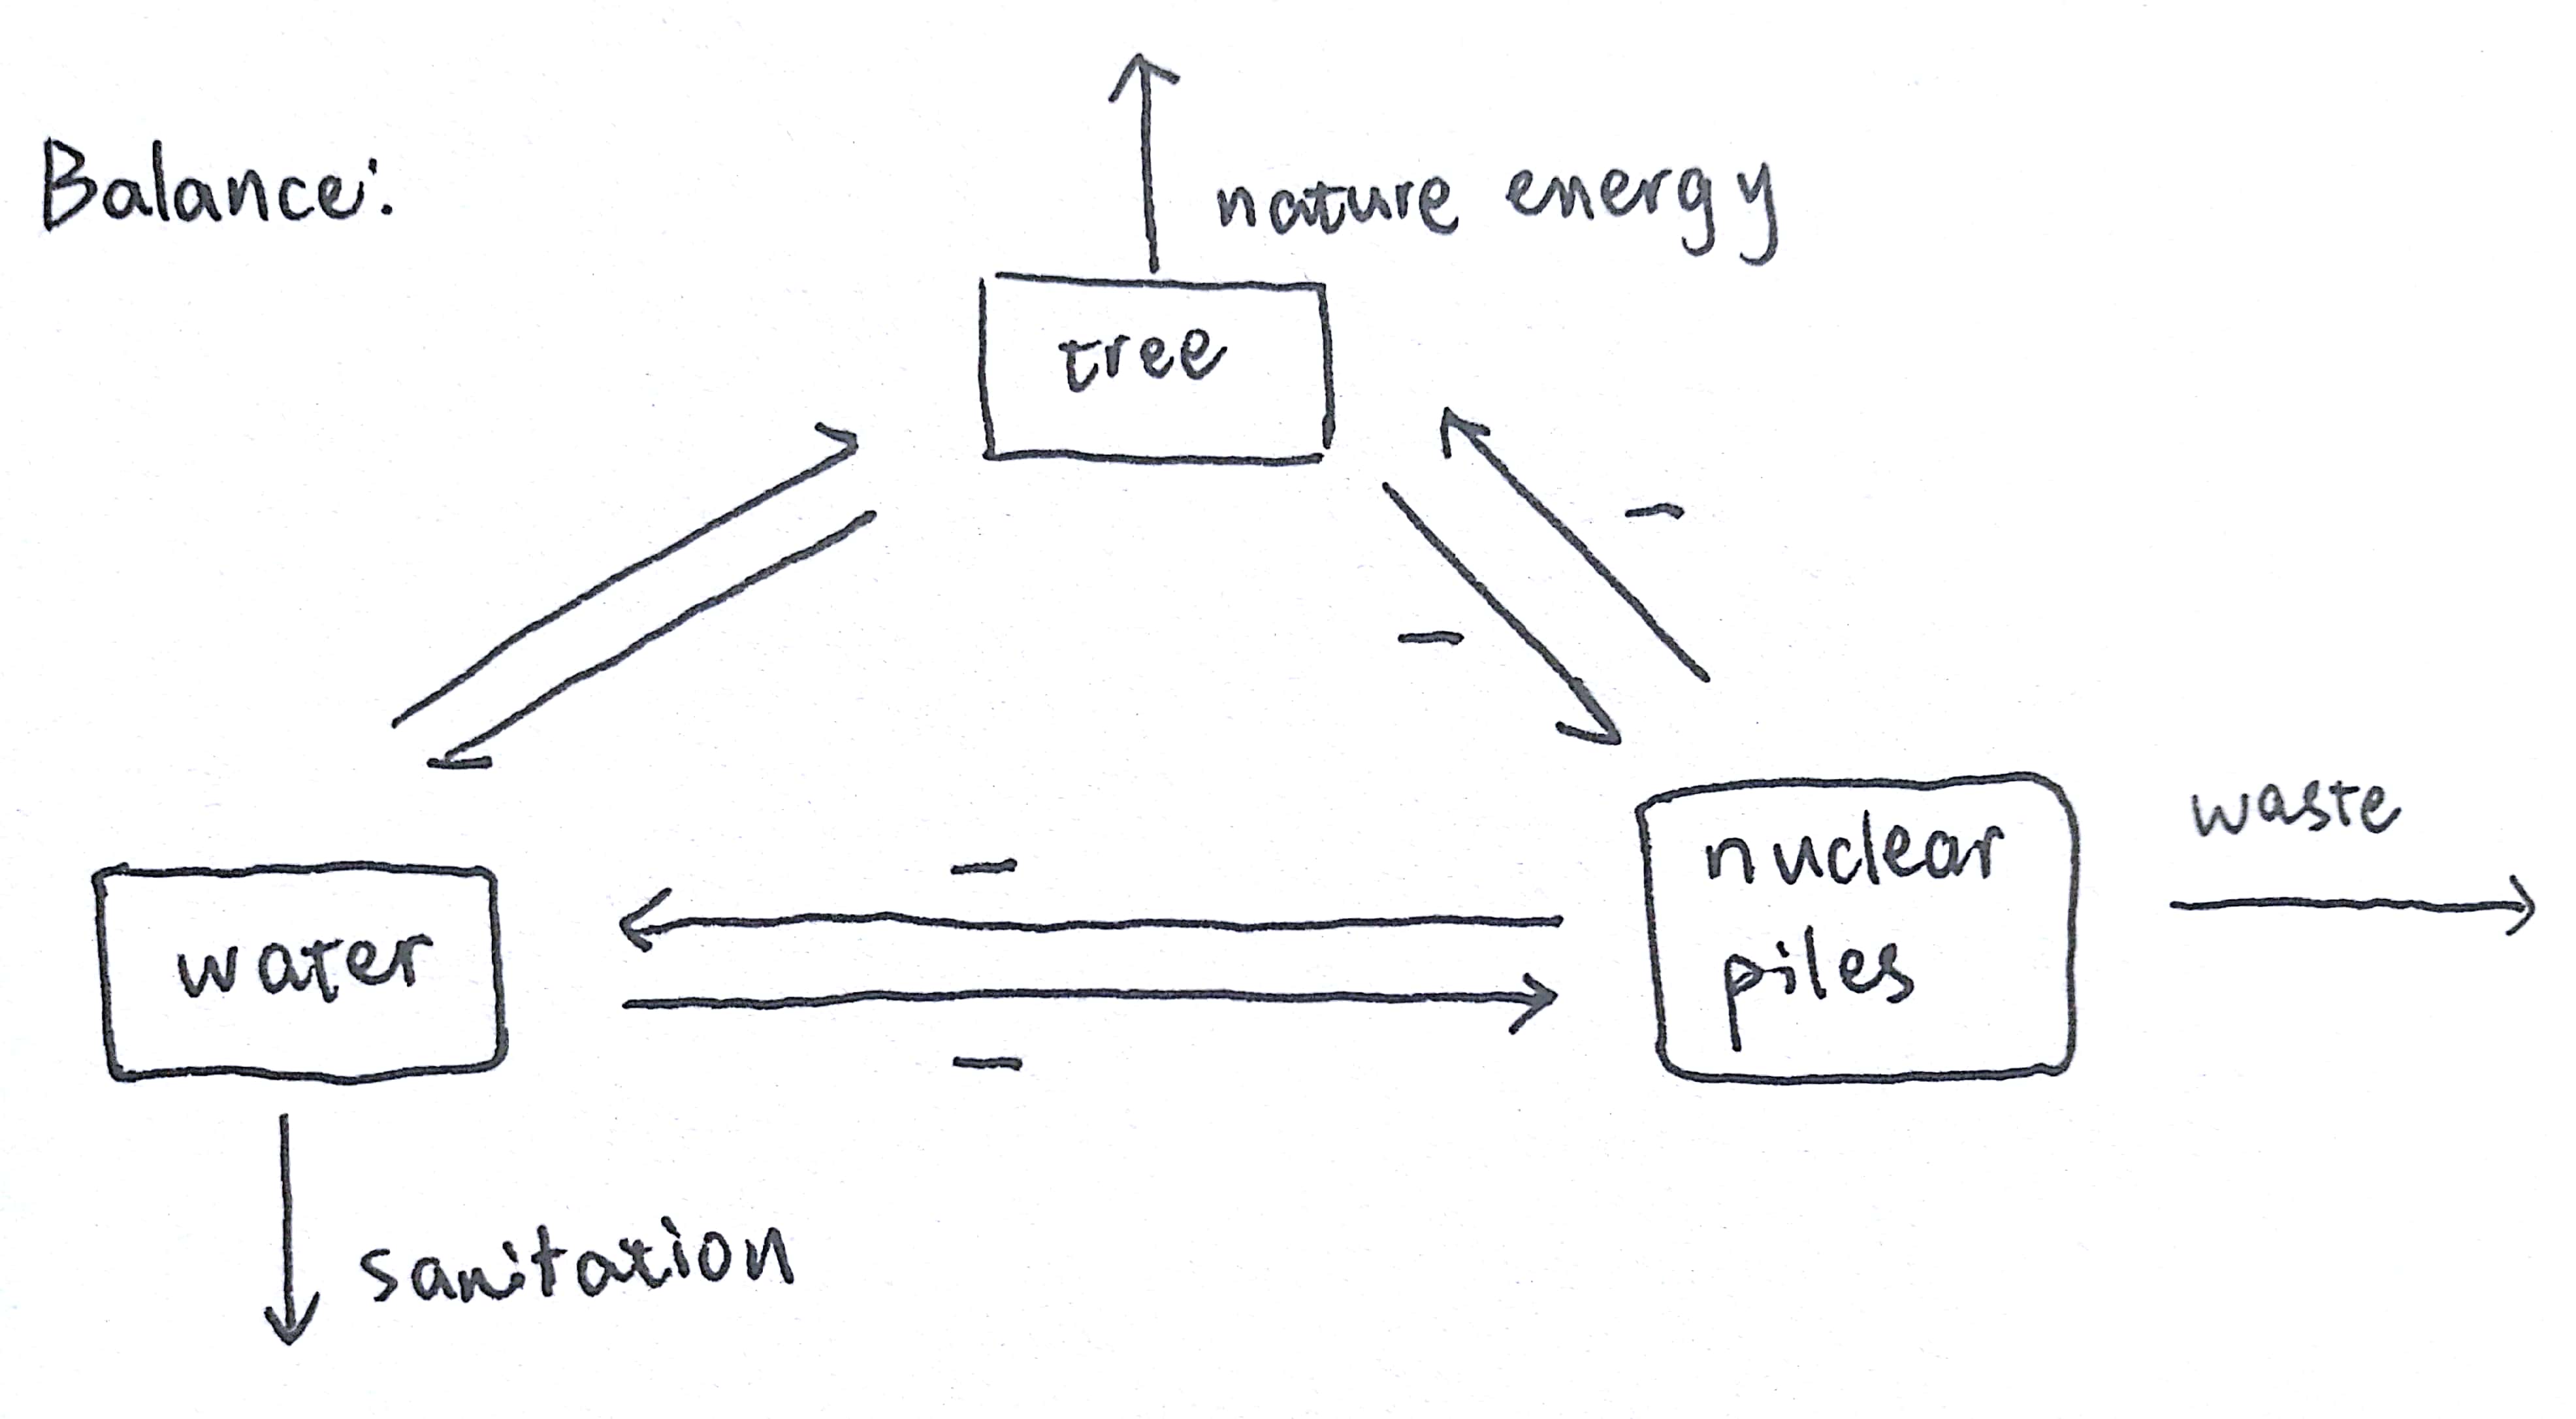 Balance:
nature energy
tree
-
-
waste
nuclear
piles
-
water
-
sanitation